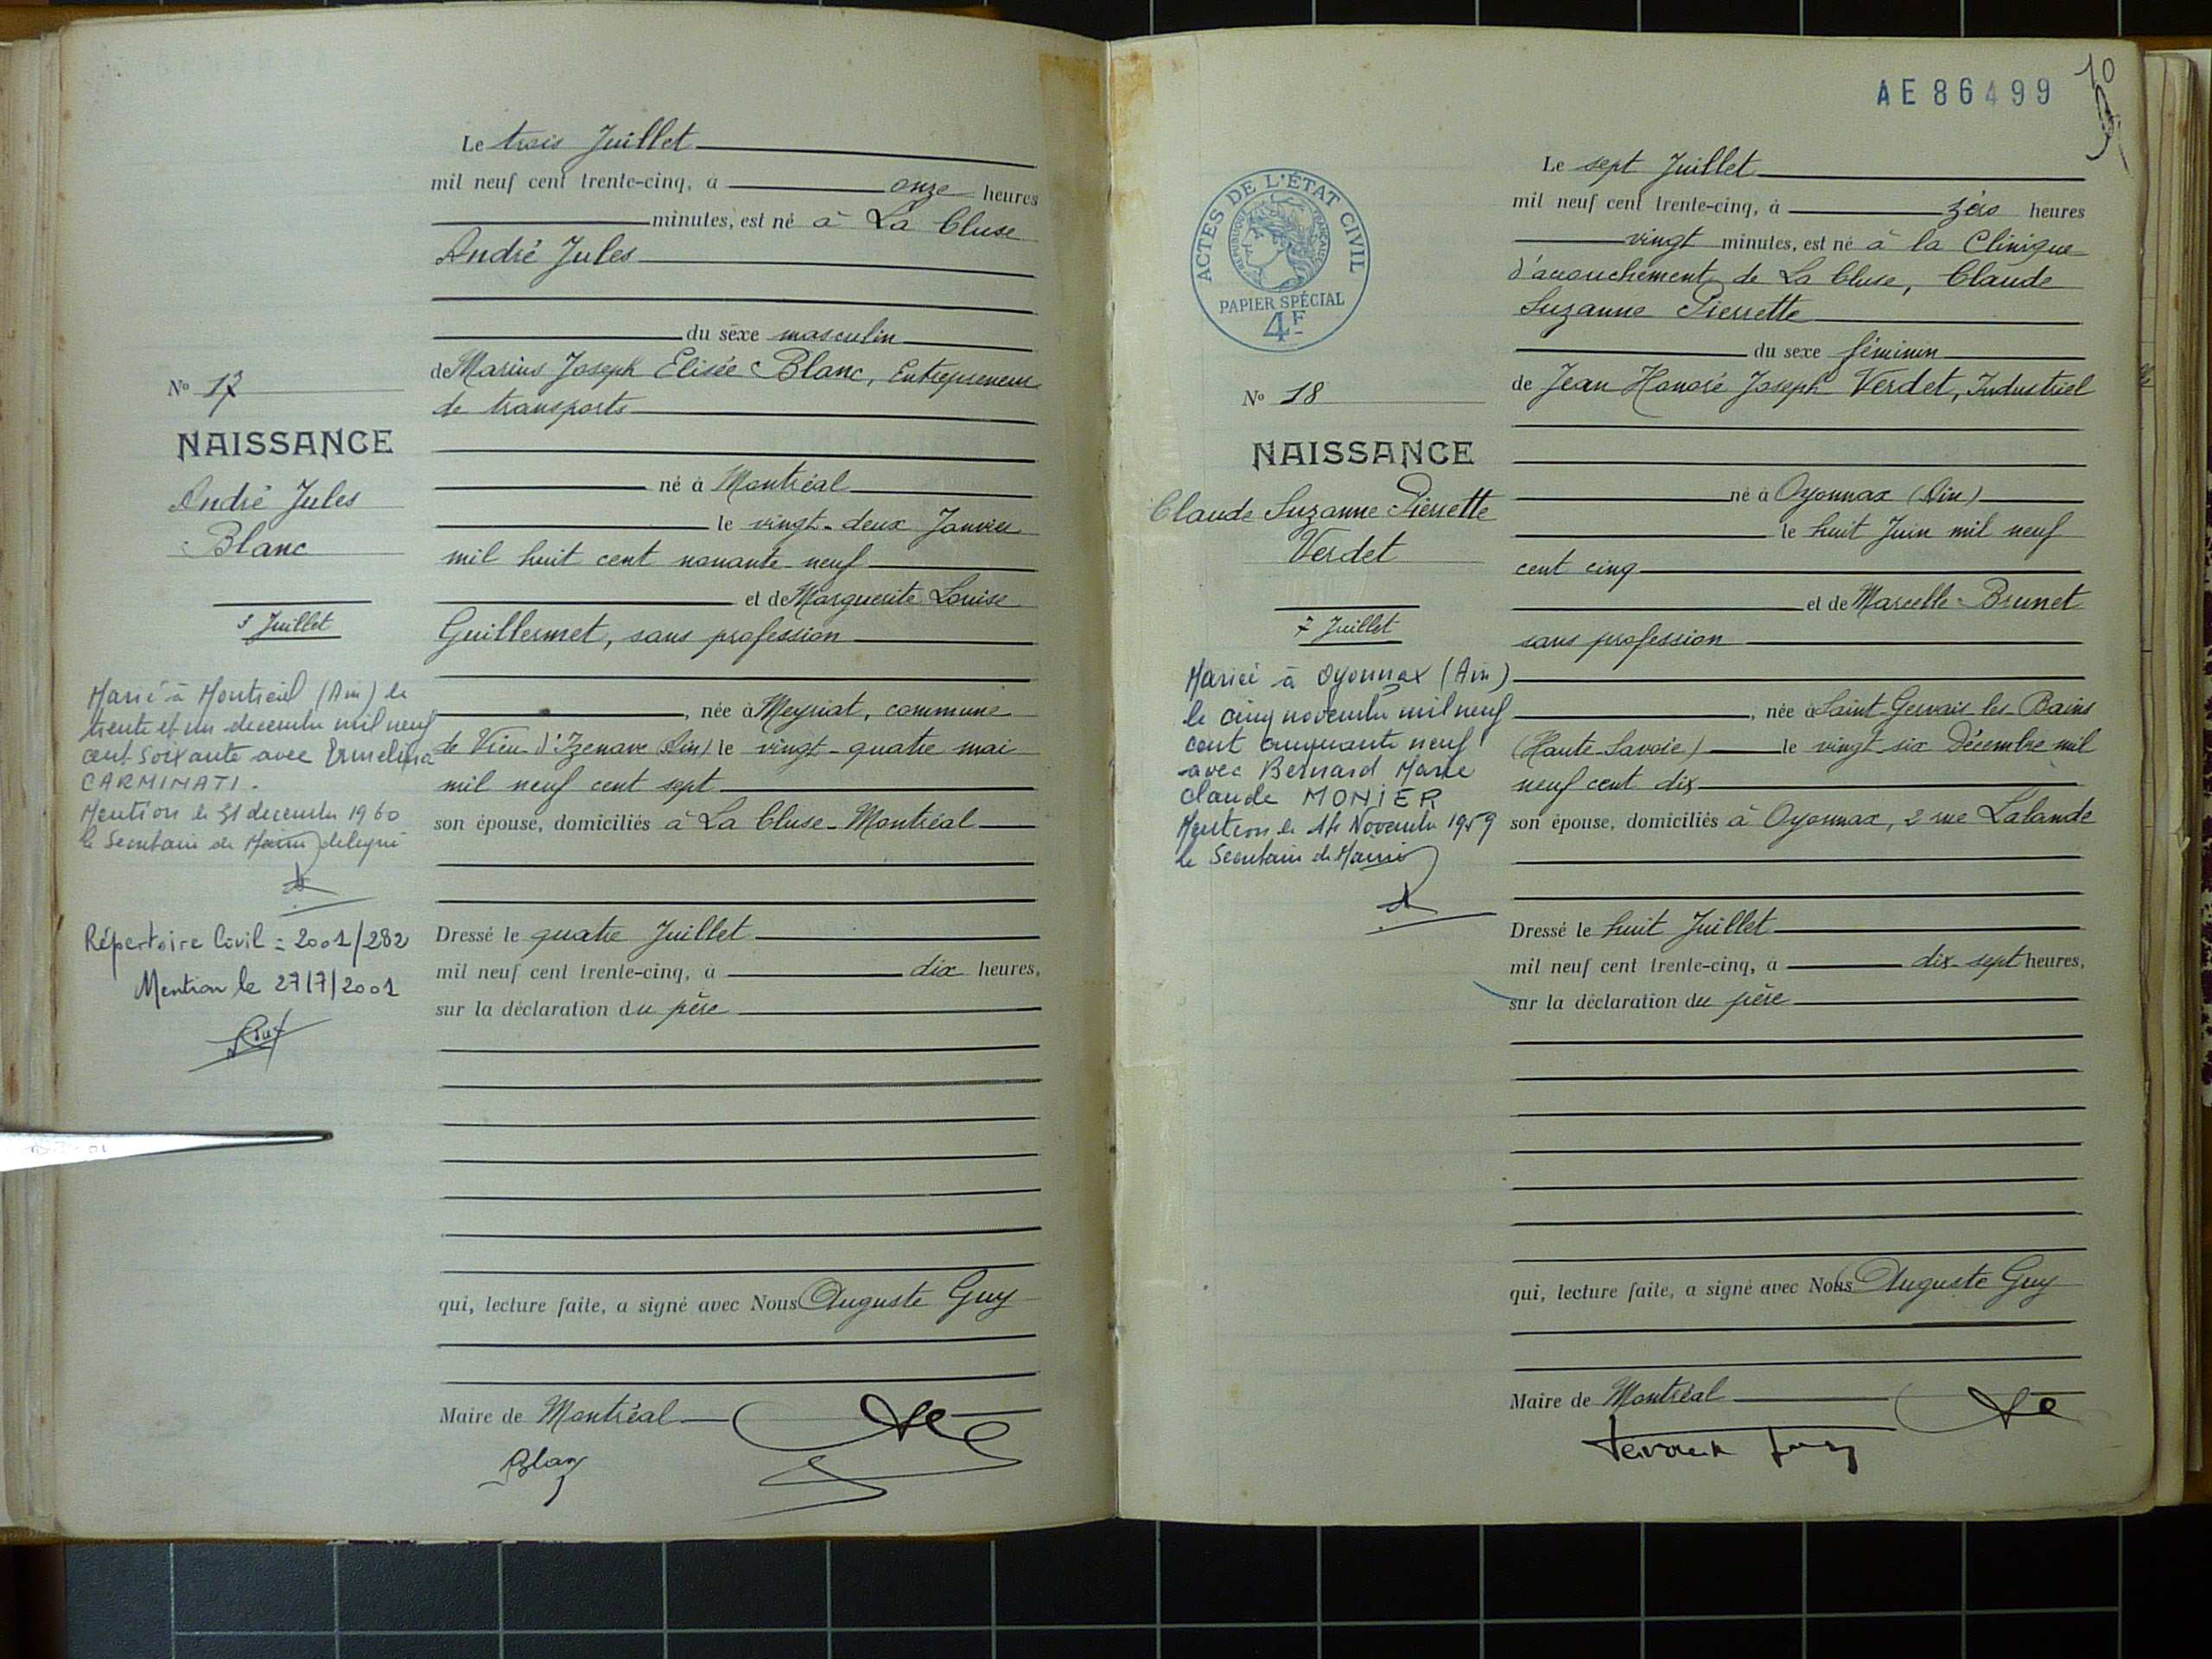 Le trois Juillet
mil neuf cent trente-cinq, à onze heures
minutes, est né à La Cluse
André Jules
du sexe masculin
de Marius Joseph Elisée Blanc, Entrepreneur
de transports
né à Montréal
le vingt-deux Janvier
mil huit cent nonante-neuf
et de Marguerite Louise
Guillermet, sans profession
, née à Meyriat, commune
de Vieu-d'Izenave (Ain) le vingt-quatre mai
mil neuf cent sept
son épouse, domiciliés à La Cluse-Montréal
Dressé le quatre Juillet
mil neuf cent trente-cinq, à dix heures,
sur la déclaration du père
qui, lecture faite, a signé avec Nous Auguste Guy
Maire de Montréal
Blanc
No 17
NAISSANCE
André Jules
Blanc
3 Juillet
Marié à Montréal (Ain) le
trente et un decembre mil neuf
cent soixante avec Ermelina
CARMINATI.
Mention le 31 decembre 1960
le Secretaire de Mairie délégué
Répertoire Civil = 2001/282
Mention le 27/7/2001
AE86499
10
ACTES DE L'ÉTAT CIVIL
RÉPUBLIQUE FRANÇAISE
PAPIER SPÉCIAL
4F
No 18
NAISSANCE
Claude Suzanne Pierrette
Verdet
7 Juillet
Mariée à Oyonnax (Ain)
le cinq novembre mil neuf
cent cinquante neuf
avec Bernard Marie
Claude MONIER
Mention le 14 Novembre 1959
le Secretaire de Mairie
Le sept Juillet
mil neuf cent trente-cinq, à zéro heures
vingt minutes, est né à la Clinique
d'accouchement de La Cluse, Claude
Suzanne Pierrette
du sexe féminin
de Jean Honoré Joseph Verdet, Industriel
né à Oyonnax (Ain)
le huit Juin mil neuf
cent cinq
et de Marcelle Brunet
sans profession
, née à Saint-Gervais-les-Bains
(Haute-Savoie) le vingt-six Décembre mil
neuf cent dix
son épouse, domiciliés à Oyonnax, 2 rue Lalande
Dressé le huit Juillet
mil neuf cent trente-cinq, à dix-sept heures,
sur la déclaration du père
qui, lecture faite, a signé avec Nous Auguste Guy
Maire de Montréal